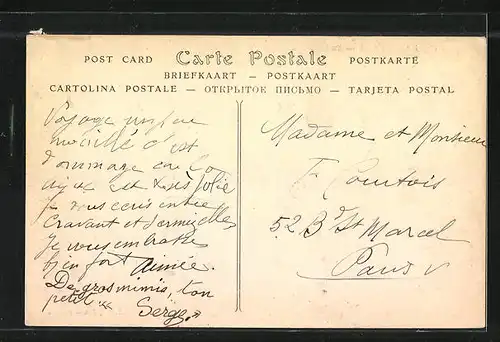 POST CARD Carte Postale POSTKARTE
BRIEFKAART — POSTKAART
CARTOLINA POSTALE — ОТКРЫТОК ПИСЬМО — TARJETA POSTAL
Voyage un peu
mouillé c'est
dommage car la
est très jolie
Je vous écris entre
Cravant et Sermizelles
Je vous embrasse
bien fort Aimée.
De gros mimis, ton
petit
Serge
Madame et Monsieur
F Courtois
52 Bd St Marcel
Paris V